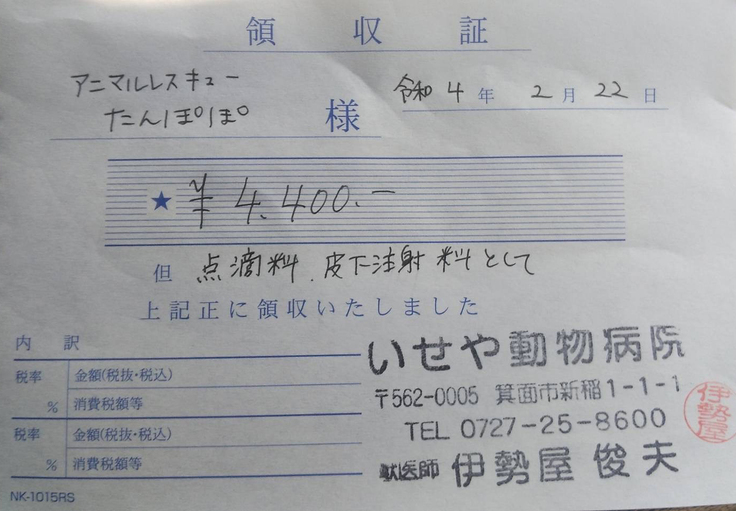 領収証
アニマルレスキュー
たんぽぽ 様
令和4年2月22日
★ ¥4,400.-
但 点滴料、皮下注射料として
上記正に領収いたしました
内訳
税率 金額(税抜・税込)
% 消費税額等
税率 金額(税抜・税込)
% 消費税額等
NK-1015RS
いせや動物病院
〒562-0005 箕面市新稲1-1-1
TEL 0727-25-8600
獣医師 伊勢屋 俊夫
伊勢屋